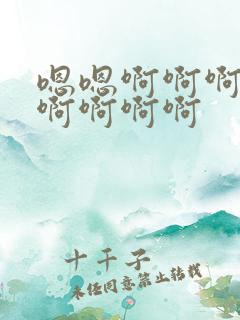 嗯嗯啊啊啊
啊啊啊啊
十千子
未经同意禁止转载